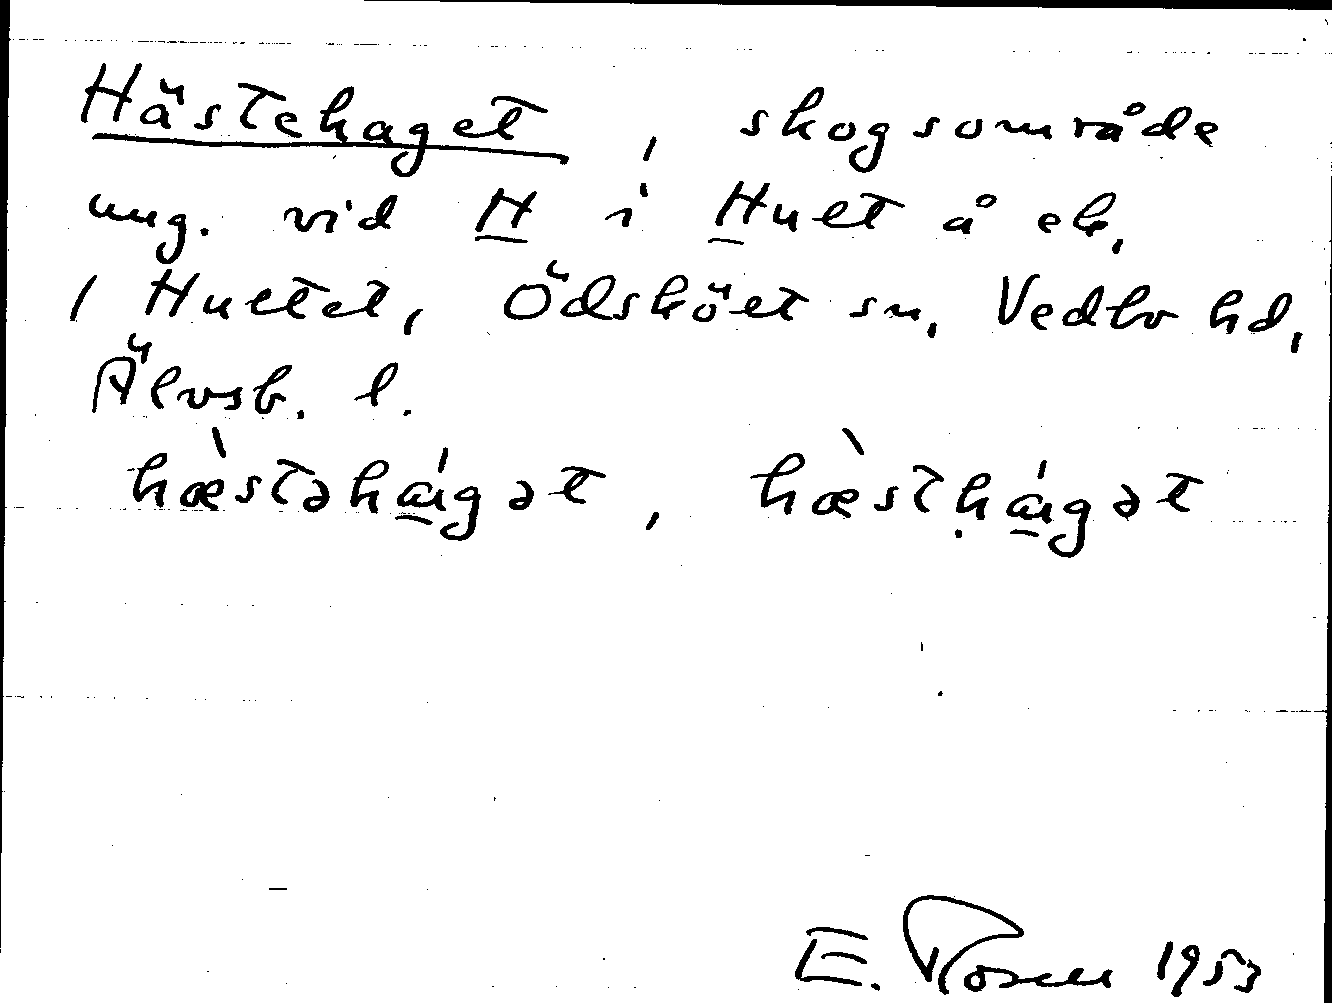 Hästehaget, skogsområde
ung. vid H i Hult å ek,
i Hultet, Ödsköλt sn, Vedbo hd,
Älvsb. l.
hæ̀stəhágət, hæ̀stḥágət
E. Rosell 1953